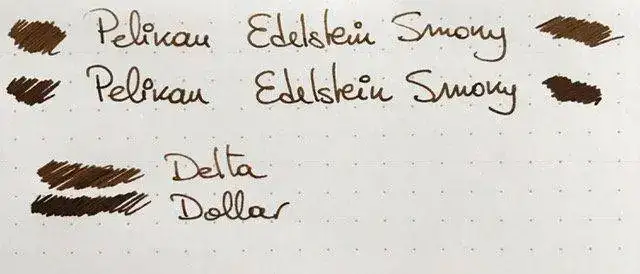 Pelikan Edelstein Smoky
Pelikan Edelstein Smoky
Delta
Dollar